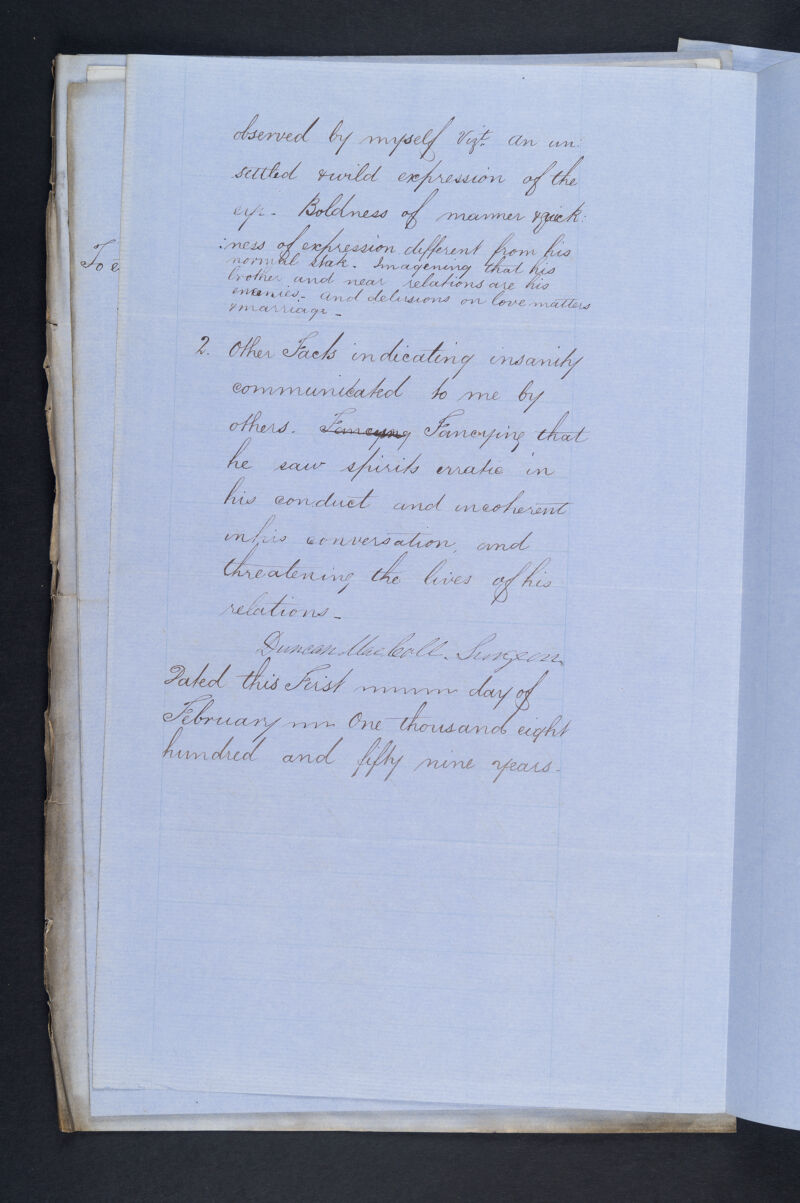 observed by myself Vizt. an un:
settled & wild expression of the
eye. Boldness of manner & quick:
:ness of expression different from his
normal state. Imagening that his
brother and near relations are his
enemies. and delusions on love matters
& marriage -
To e
2. Other Facts indicating insanity
communicated to me by
others. Fancying Fancying that
he saw spirits erratic in
his conduct and incoherent
in his conversation, and
threatening the lives of his
relations -
Duncan MacColl. Surgeon
Dated this First day of
February One thousand eight
hundred and fifty nine years.